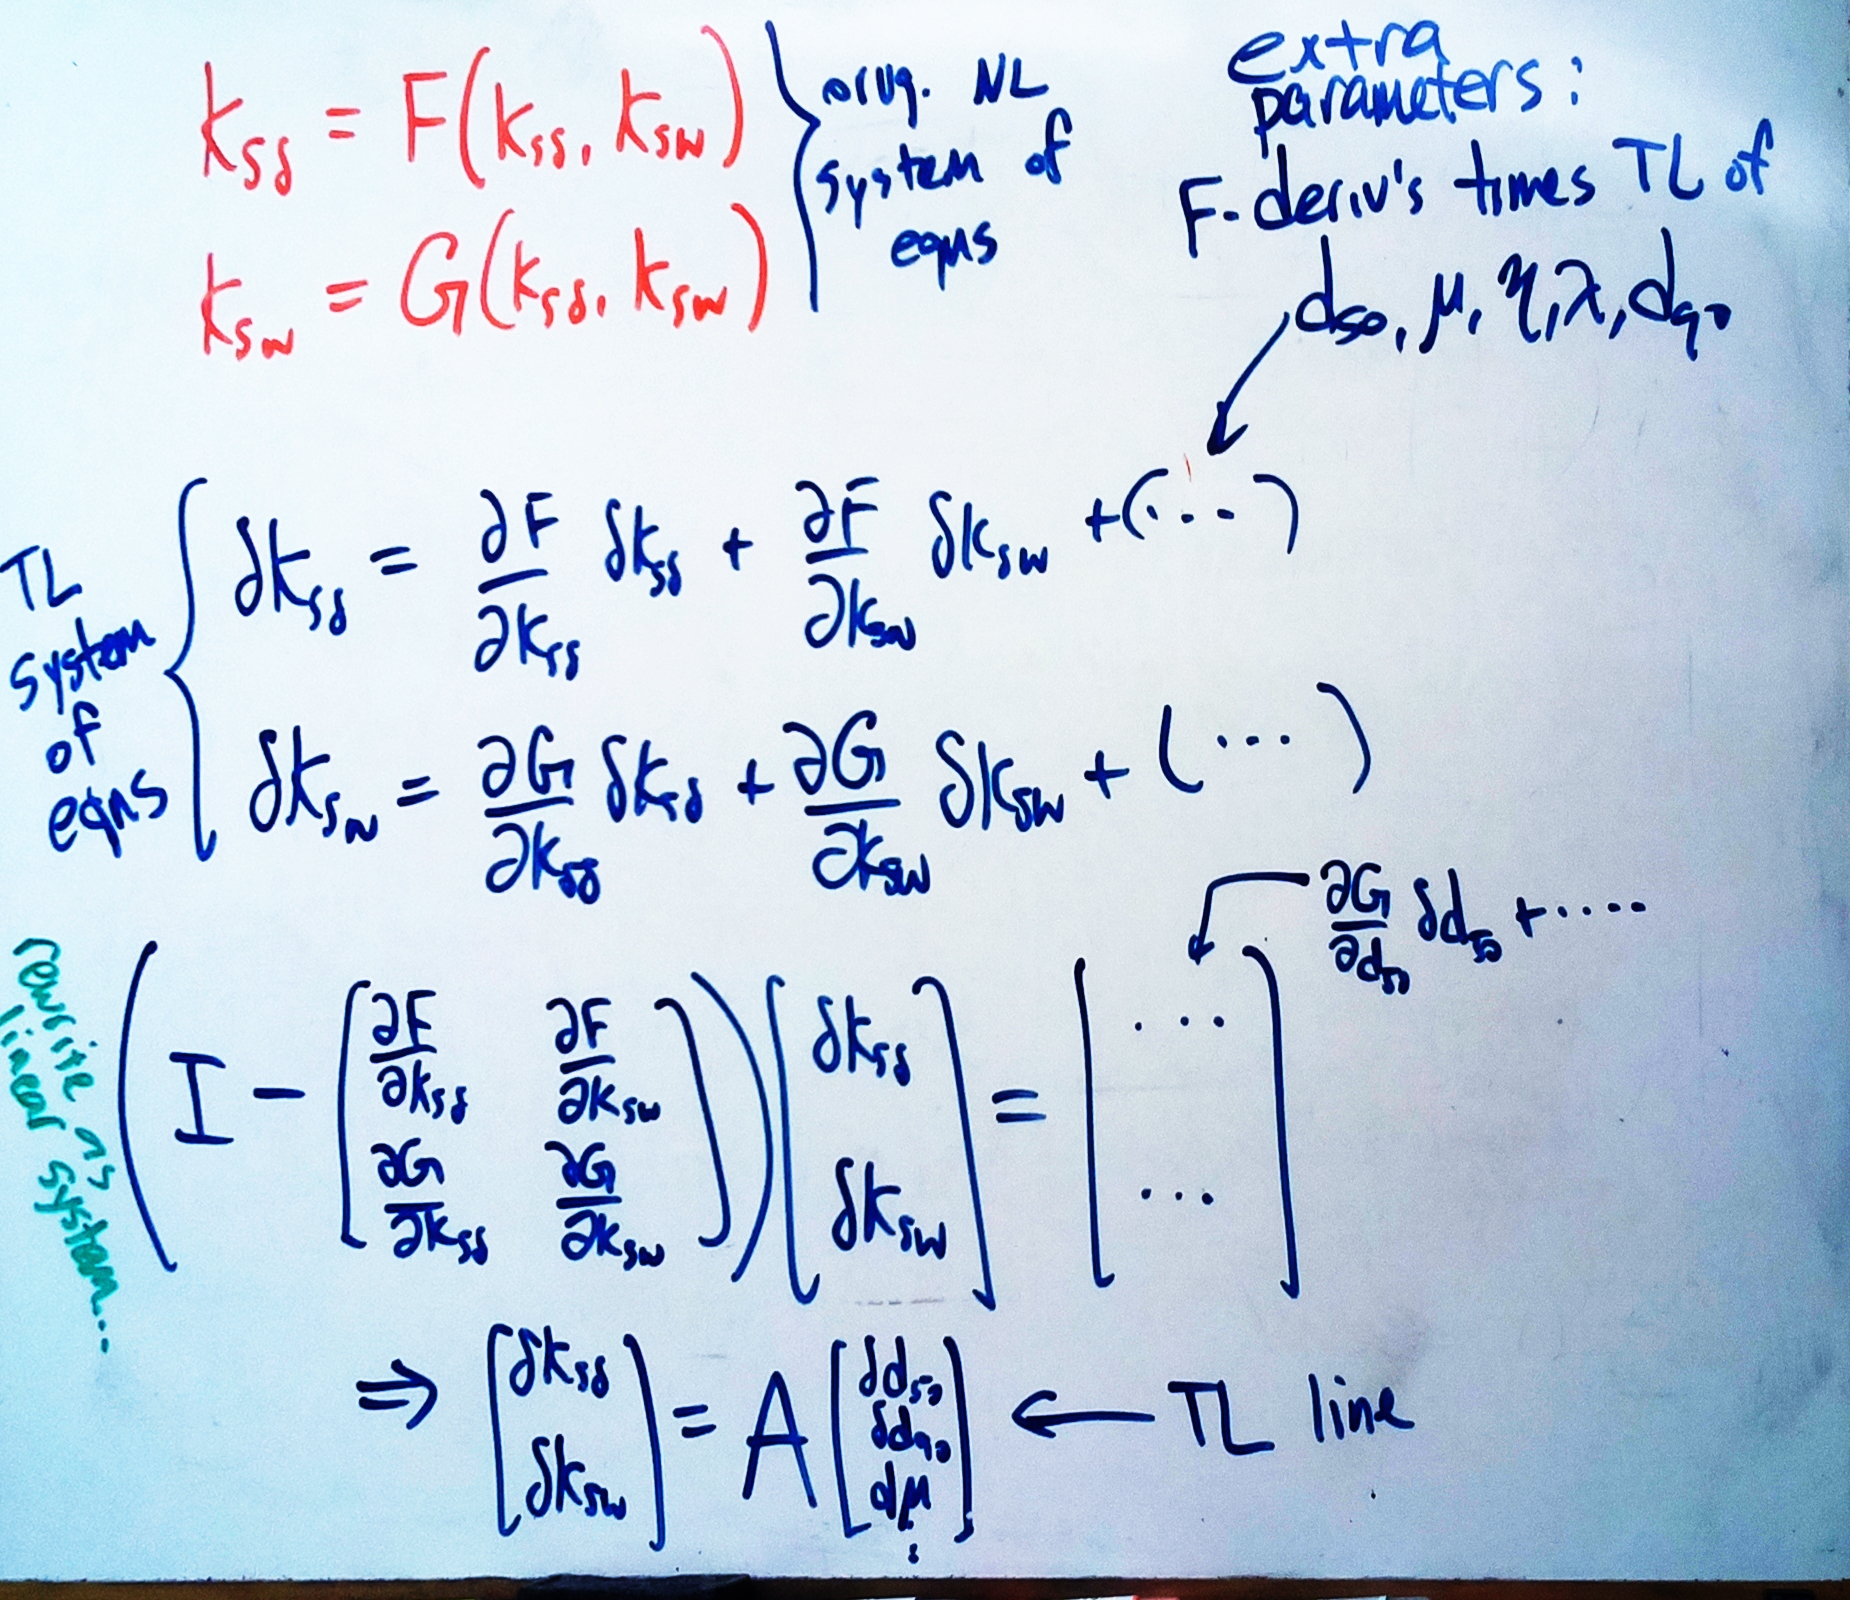 ksδ = F(ksδ, ksw)
ksw = G(ksδ, ksw)
orig. NL
system of
eqns
extra
parameters:
F-deriv's times TL of
d50, μ, η, λ, d90
TL
system
of
eqns
δksδ = ∂F/∂ksδ δksδ + ∂F/∂ksw δksw + (...)
δksw = ∂G/∂ksδ δksδ + ∂G/∂ksw δksw + (...)
∂G/∂d50 δd50 + .....
rewrite as
linear system...
(I - [∂F/∂ksδ ∂F/∂ksw
∂G/∂ksδ ∂G/∂ksw]) [δksδ
δksw] = [...
...]
⇒ [δksδ
δksw] = A [δd50
δd90
dμ
⋮] ← TL line